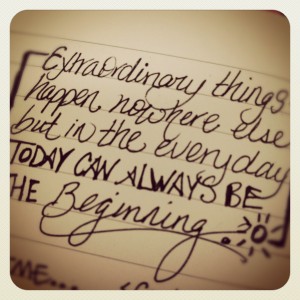 Extraordinary things
happen nowhere else
but in the everyday
TODAY CAN ALWAYS BE
THE Beginning.